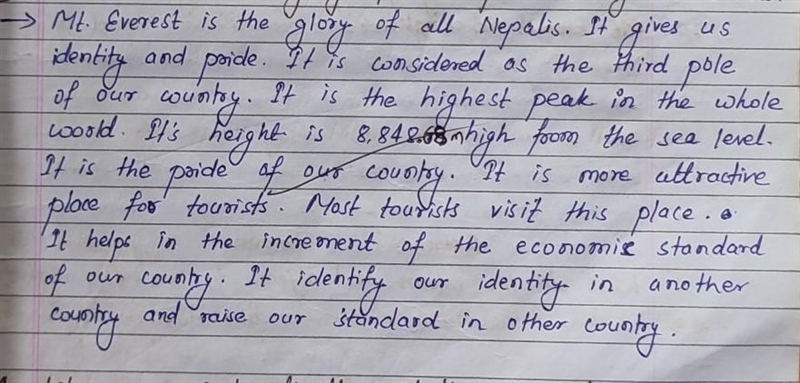 → Mt. Everest is the glory of all Nepalis. It gives us
identity and pride. It is considered as the third pole
of our country. It is the highest peak in the whole
world. It's height is 8,848.68m high from the sea level.
It is the pride of our country. It is more attractive
place for tourists. Most tourists visit this place.
It helps in the increment of the economic standard
of our country. It identify our identity in another
country and raise our standard in other country.